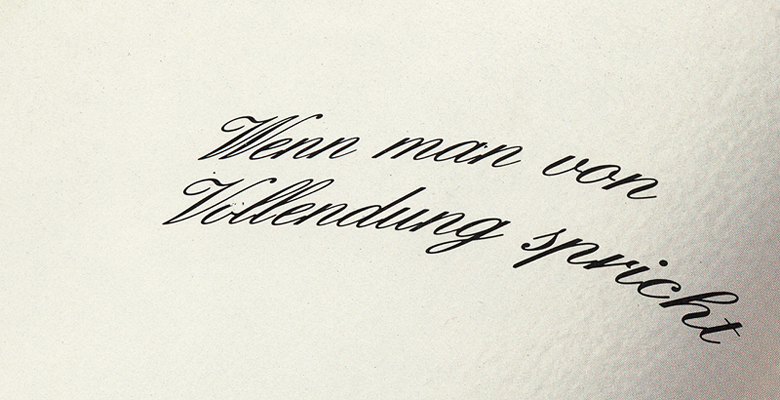 Wenn man von
Vollendung spricht